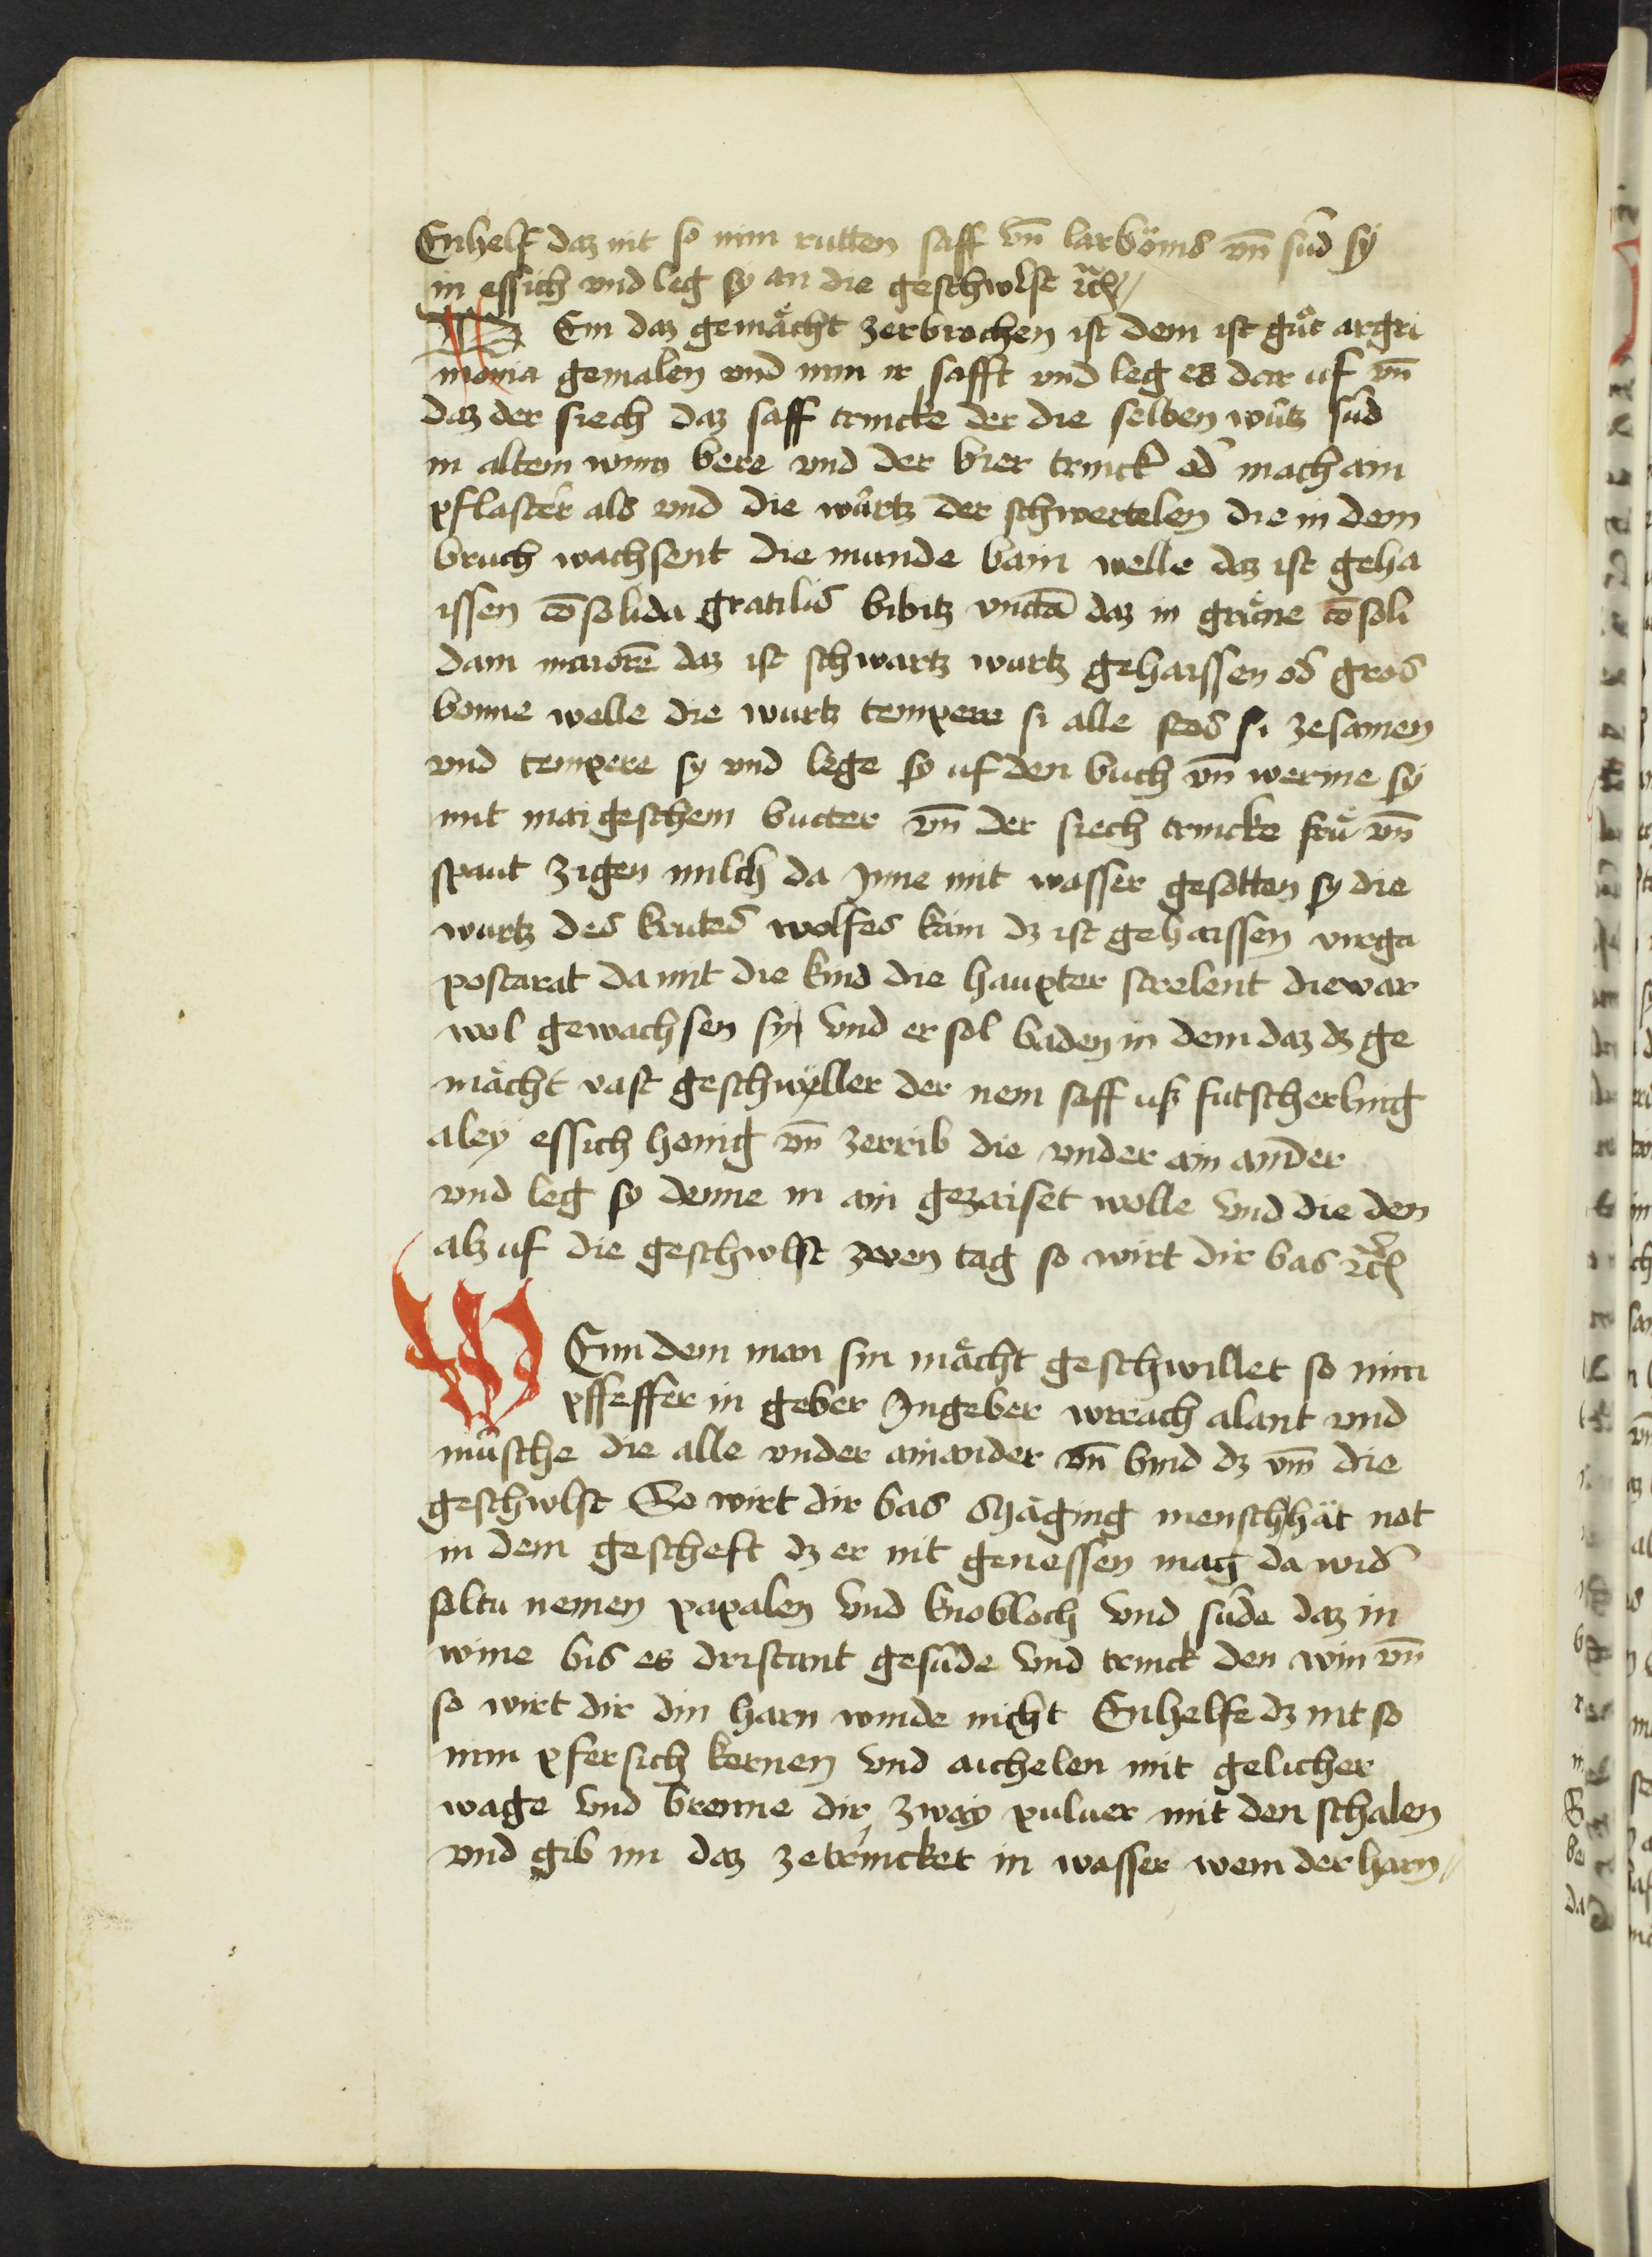 Enhelf daz nit so nim rutten saff vn̄ larböms vn̄ sud sy
in essich vnd leg sy an die geschwlst ꝛc
W Em daz gemächt zerbrochen ist dem ist gůt argri
monia gemalen vnd nim ir safft vnd leg es dar uf vn̄
daz der siech daz saff trincke der die selben wůtz sůd
in altem win bere vnd der bier trinck od mach ain
pflaster als vnd die wůrtz der schwertelen die in dem
bruch wachsent die munde bain welle daz ist geha
issen cōsolida gratilis bibitz vnctā daz in gräne cōsoli
dam maiorē daz ist schwartz wurtz gehaissen od gros
bonne welle die wurtz tempere si alle stos si zesamen
vnd tempere sy vnd lege sy uf den buch vn̄ werme sy
mit maigeschem butter vn̄ der siech trincke frü vn̄
spaut zigen milch da Jnne mit wasser gesotten sy die
wurtz des krutes wolfes kain dz ist gehaissen virga
postarat da mit die kind die haupter strelent die war
wol gewachsen syn vnd er sol baden in dem daz dz ge
mächt vast geschwyller der nem saff uß futscherling
aley essich honig vn̄ zerrib die vnder ain ander
vnd leg sy denne in ain gezaiset wolle vnd die den
alz uf die geschwlst zwen tag so wirt dir bas ꝛc
W Enn dem man sin mächt geschwillet so nim
pfeffer in geber Jngeber wirach alant vnd
müsche die alle vnder ainander vn̄ bind dz vm̄ die
geschwlst So wirt dir bas menschhät not
in dem gescheft dz er nit genessen mag da wid
soltu nemen papalen vnd knobloch vnd sůde daz in
wine bis es dristant gesůde vnd trinck den win vn̄
so wirt dir din harn winde nicht Enhelfe dz nit so
nim pfersich kernen vnd aichelen mit gelicher
wage vnd brenne dir zway puluer mit den schalen
vnd gib im daz zetrincket in wasser wem der harn